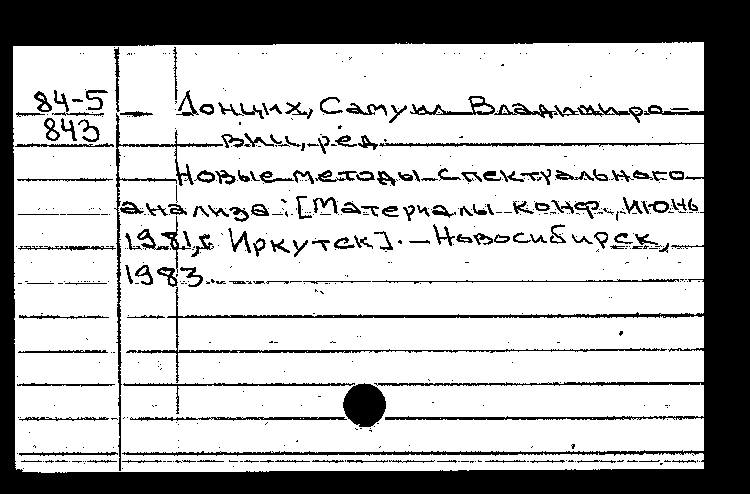 84-5
843
Лонцих, Самуил Владимиро-
вич, ред.
Новые методы спектрального
анализа : [Материалы конф., июнь
1981, г. Иркутск]. — Новосибирск,
1983.